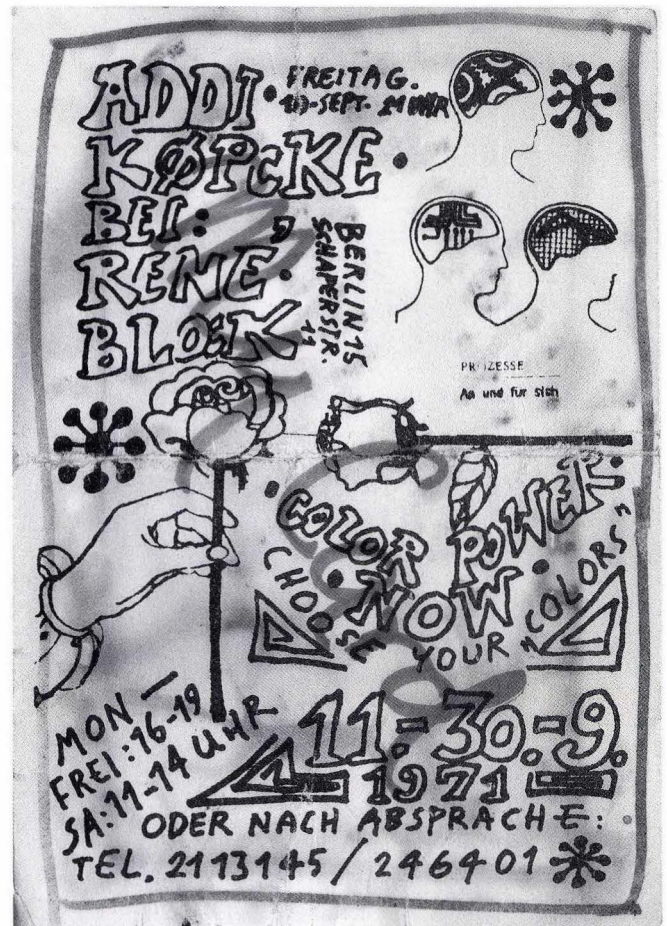 ADDI·
KØPCKE·
BEI:
RENE·
BLOCK
FREITAG.
10-SEPT. 21 UHR
BERLIN 15
SCHAPERSTR.
11
PROZESSE
An und fur sich
COLOR POWER·
NOW
CHOOSE YOUR "COLORS"
MON—
FREI:16-19
SA:11-14 UHR
11.-30.-9.
1971
ODER NACH ABSPRACHE:
TEL. 2113145/246401